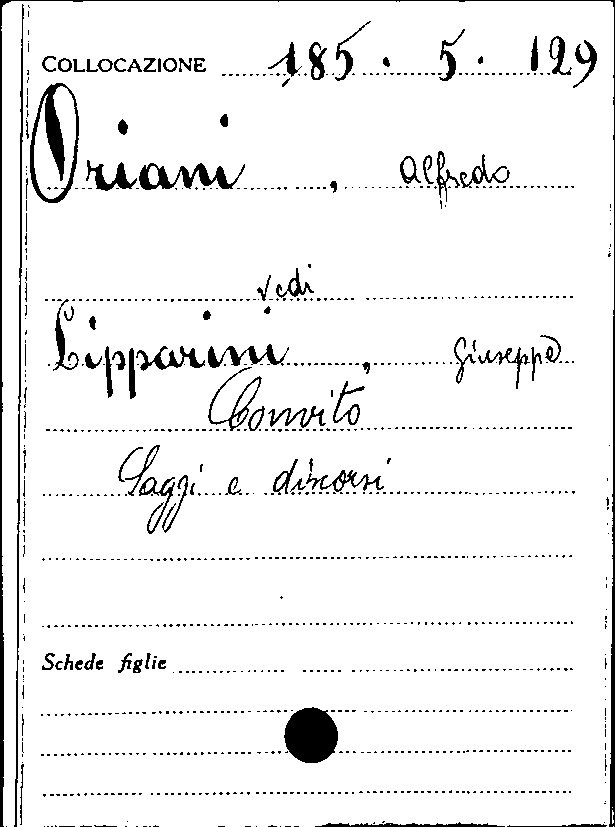 COLLOCAZIONE 185. 5. 129
Oriani, Alfredo
vedi
Lipparini, Giuseppe
Convito
Saggi e discorsi
Schede figlie